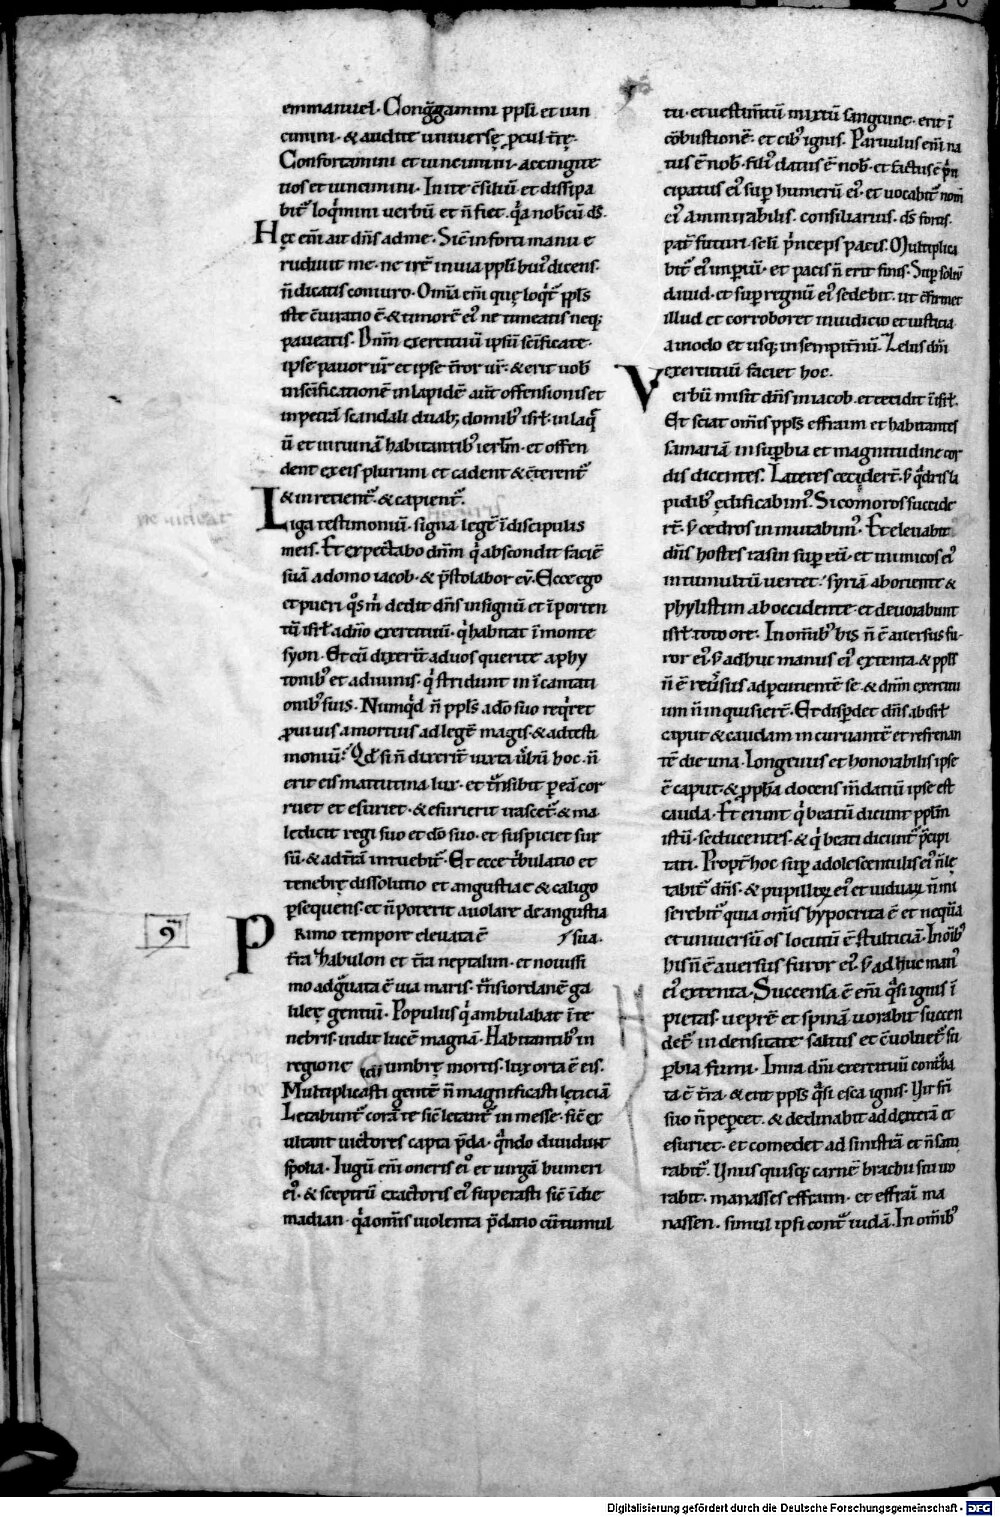 emmanuel. Cong̃gamini ppl̃i et uin
cimini. & audite uniuersę ꝓcul t̃rę.
Confortamini et uincimini. accingite
uos et uincimini. Inite c̄siliū et dissipa
bit᷑ loq̇mini uerbū et ñ fiet. q̇a nob̄cū d̄s.
Hęc em̄ ait dn̄s ad me. Sic̄ in forti manu e
rudiuit me. ne irē in uia ppl̃i huiꝰ dicens.
ñ dicatis coniuro. Om̄ia em̄ quę loq̇t᷑ ppl̃s
iste c̄iuratio ē. & timorē eiꝰ ne timeatis neq;
paueatis. Dn̄m exercituū ipsū sc̄ificate.
ipse pauor ur̄ et ipse t̃ror ur̄. & erit uob̄
in sc̄ificationē in lapidē aut̄ offensionis et
in petrā scandali duab; domibꝰ isrl̄. in laq̇
ū et in ruinā habitantibꝰ ierl̄m. et offen
dent ex eis plurimi et cadent & c̄terent᷑
& inretient᷑. & capient᷑.
Liga testimoniū. signa legē ī discipulis
meis. Et expectabo dn̄m q̇ abscondit faciē
suā a domo iacob. & p̄stolabor eū. Ecce ego
et pueri q̊s m̄ dedit dn̄s in signū et ī porten
tū isrl̄ a dn̄o exercituū. q̇ habitat ī monte
syon. Et cū dixerīt ad uos querite a phy
tonibꝰ et a diuinis. q̇ stridunt in ī cantati
onibꝰ suis. Numq̇d ñ ppl̃s a d̄o suo req̇ret
ꝓ uiuis a mortuis ad legē magis. & ad testi
moniū. Qd̄ si ñ dixerīt iuxta ūbū hoc. ñ
erit eis matutina lux. et t̃nsibit ꝑ eā cor
ruet et esuriet. & esurierit irascet᷑. & ma
ledicit regi suo et d̄o suo. et suspiciet sur
sū. & ad t̃rā intuebit᷑. Et ecce t̃bulatio et
tenebrę dissolutio et angustiae & caligo
ꝑsequens. et ñ poterit auolare de angustia
Primo tempore eleuata ē sua.
9
t̃ra zabulon et t̃ra neptalim. et nouissi
mo adg̃uata ē uia maris. t̃nsiordanē ga
lileę gentiū. Populus q̇ ambulabat ī te
nebris. uidit lucē magnā. Habitantibꝰ in
regione umbrę mortis. lux orta ē eis.
Multiplicasti gentē ñ magnificasti lęticiā
Lętabunt᷑ corā te sic̄ lętant᷑ in messe. sic̄ ex
ultant uictores capta p̄da. q̇ndo diuidunt
spolia. Iugū em̄ oneris eiꝰ et uirgā humeri
eiꝰ. & sceptrū exactoris eiꝰ superasti sic̄ ī die
madian. q̇a om̄is uiolenta p̄datio cū tumul
tu. et uestim̄tū mixtū sanguine. erit ī
cōbustionē. et cibꝰ ignis. Paruulus em̄ na
tus ē nob̄. filiꝰ datus ē nob̄. et factus ē p̄n
cipatus eiꝰ suꝑ humerū eiꝰ. et uocabit᷑ nom̄
eiꝰ ammirabilis. consiliarius. d̄s fortis.
pat᷑ futuri scl̄i. p̄nceps pacis. Multiplica
bit᷑ eiꝰ imperiū. et pacis ñ erit finis. Suꝑ soliū
dauid. et suꝑ regnū eiꝰ sedebit. ut c̄firmet
illud et corroboret in iudicio et iusticia
amodo et usq; in sempit̄nū. Zelus dn̄i
exercituū faciet hoc.
Verbū misit dn̄s in iacob. et cecidit ī isrl̄.
Et sciat om̄is ppl̃s effraim et habitantes
samariā in suꝑbia et magnitudine cor
dis dicentes. Lateres cecider̄t. ṡ q̇dris la
pidibꝰ ędificabimꝰ. Sicomoros succide
rt̄. ṡ cedros in mutabimꝰ. Et eleuabit
dn̄s hostes rasin suꝑ eū. et inimicos eiꝰ
in tumultū uertet. syriā ab oriente &
phylistim ab occidente. et deuorabunt
isrl̄ toto ore. In om̄ibꝰ his ñ ē auersus fu
ror eiꝰ. ṡ adhuc manus eiꝰ extenta. & ppl̃s
ñ ē reūsus ad ꝑcutientē se. & dn̄m exercitu
um ñ inquisier̄t. Et disꝑdet dn̄s ab isrl̄
caput & caudam incuruantē et refrenan
tē die una. Longeuus et honorabilis ipse
ē caput. & ꝓph̄a docens m̄datiū ipse est
cauda. Et erunt q̇ beatū dicunt ppl̄m
istū. seducentes. & q̇ beati dicunt᷑ p̄cipi
tati. Propt̄ hoc suꝑ adolescentulis eiꝰ ñ lę
tabit᷑ dn̄s. & pupilloꝝ eiꝰ et uiduaꝝ ñ mi
serebit᷑ quia om̄is hypocrita ē et neq̇ā
et uniuersū os locutū ē stulticiā. In om̄ibꝰ
his ñ ē auersus furor eiꝰ. ṡ adhuc manꝰ
eiꝰ extenta. Succensa ē em̄ q̇si ignis ī
pietas. ueprē et spinā uorabit succen
det᷑ in densitate saltus et c̄uoluet᷑ su
ꝑbia fumi. In ira dn̄i exercituū cont̃ba
ta ē t̃ra. & erit ppl̃s q̇si esca ignis. Uir fr̄i
suo ñ peꝑcet. & declinabit ad dexterā et
esuriet. et comedet ad sinistrā et ñ satu
rabit᷑. Unus quisq; carnē brachii sui uo
rabit. manasses effraim. et effraī ma
nassen. simul ipsi cont᷑ iudā. In om̄ibꝰ
Digitalisierung gefördert durch die Deutsche Forschungsgemeinschaft - DFG